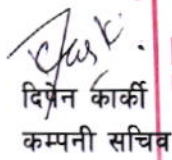 दिपेन कार्की
कम्पनी सचिव